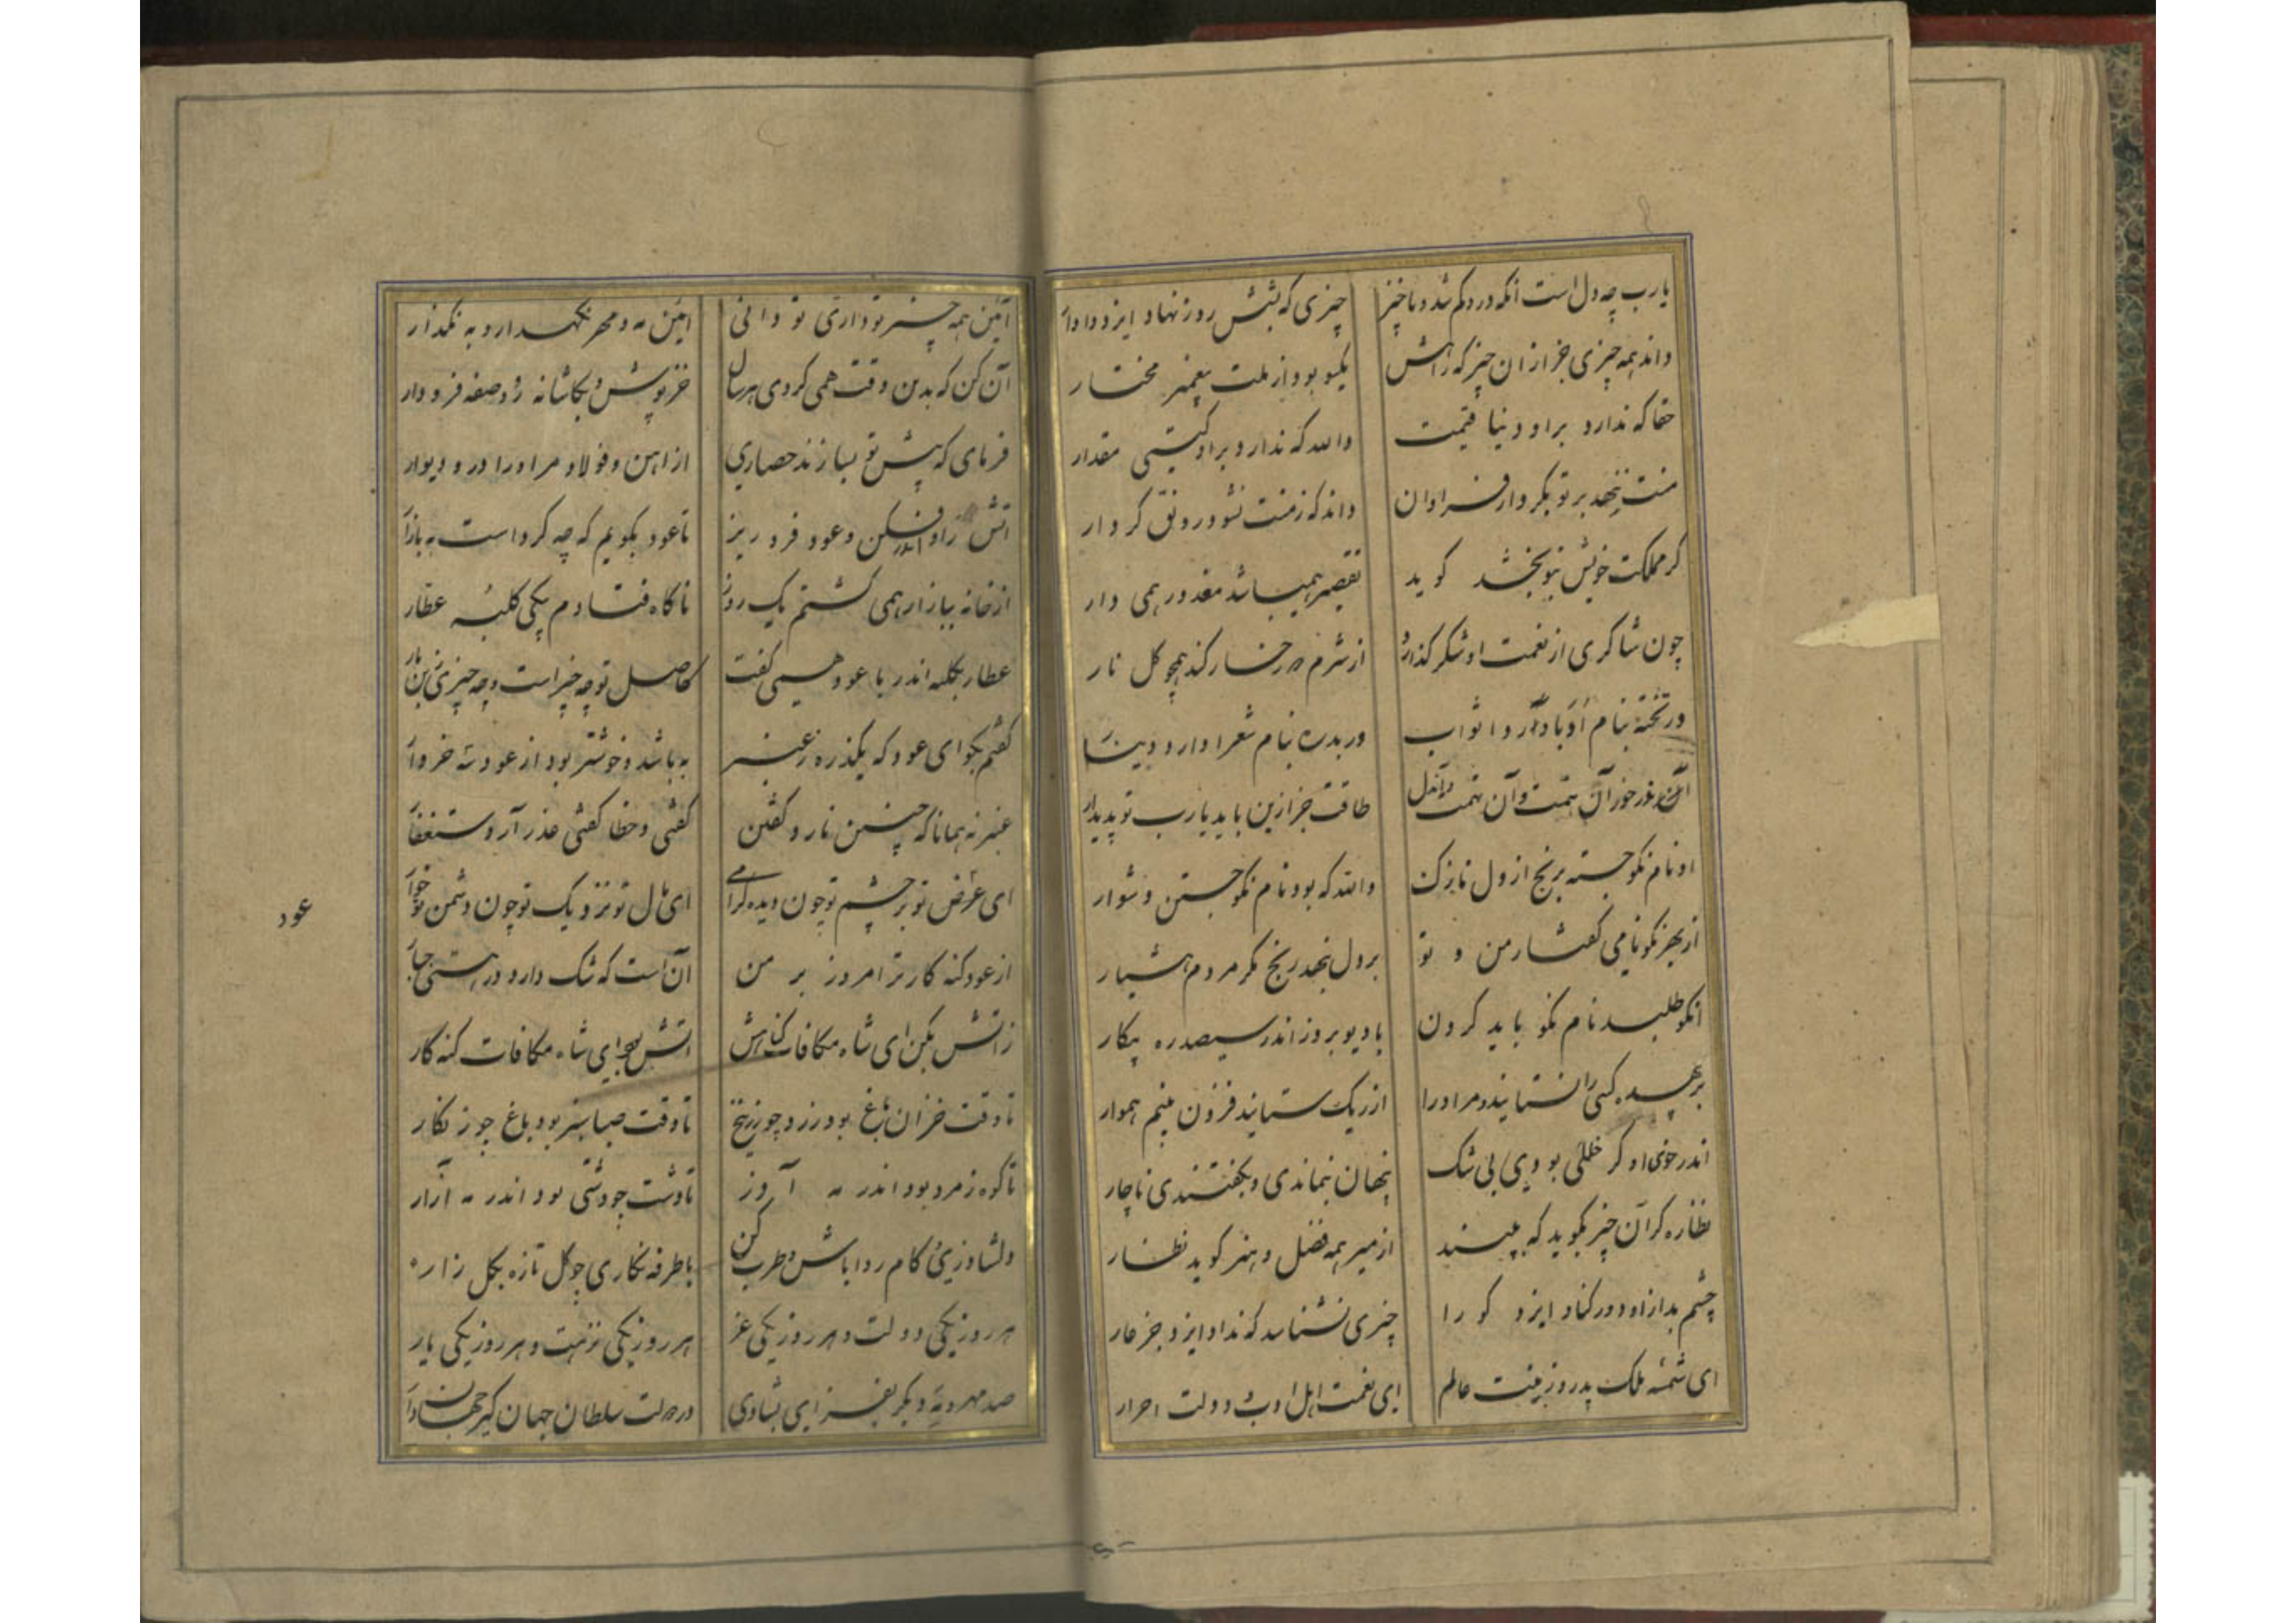 یارب چه دل است انکه درو کم شد و ناخیز چیزی که بشش روز نهاد ایزد دادا
داند همه چیزی جز ازان چیز که زاهش یکسو بود از ملت پیغمبر مختار
حقا که ندارد بر او دنیا قیمت والله که ندارد بر او کیتی مقدار
منت ننهد بر تو بکردار فراوان داند که زمنت نشود رونق کردار
کر مملکت خویش بتو بخشد کوید تقصیر همیباشد معذور همی دار
چون شاکری از نعمت او شکر کذارد از شرم دو رخسار کند همچو کل نار
ور تخته بنام ادبا دارد اثواب ور بدره بنام شعرا دارد دینار
در خور آن همت وآن همت طاقت جز ازین باید یارب تو پدیدار
او نام نکو جسته برنج از دل نازک والله که بود نام نکو جستن دشوار
از بهر نکو نامی کفتار من و تو بر دل ننهد رنج مکر مردم هشیار
انکو طلبد نام نکو باید کردن با دیو بروز اندر سیصد ره پیکار
بر هر کسی را نستایند و مر او را از ریک ستایند فزون بینم هموار
اندر خوی او کر خللی بودی بی شک پنهان بنماندی و بکفتندی ناچار
نظاره کر آن چیز بکوید که ببیند از میر همه فضل و هنر کوید نظار
چشم بد ازاو دور کناد ایزد کو را چیزی نشناسد که نداد ایزد جز عار
ای شمسه ملک پدر و زینت عالم ای نعمت اهل ادب و دولت احرار
آئین همه چیز تو داری تو دانی ائین مه و مهر نکهدار و به نکذار
آن کن که بدین وقت همی کردی هر سال خز پوش و بکاشانه رو و صفه فرودار
فرمای که پیش تو بسازند حصاری از اهن و فولاد مر او را در و دیوار
اتش را اندر افکن وعود فرو ریز تا عود بکویم که چه کرد است ببازار
از خانه ببازار همی کشتم یک روز ناکاه فتادم بیکی کلبه عطار
عطار بکلبه اندر با عود همی کفت کاصل تو چه چیز است و چه چیزی زبن نار
کفتم بکو ای عود که یکذره ز عنبر به باشد و خوشتر بود از عود سه خروار
عنبر نه همانا که چنین نارد کفتن کفتی و خطا کفتی عذر آر و ستغفار
ای عرض تو بر چشم تو چون دیده کرامی ای مال تو نزدیک تو چون دشمن تو خوار
عود
از عود کنه کارتر امروز بر من آن است که شک دارد در هستی جبار
زاتش بکن ای شاه مکافات کناهش اتش بود ای شاه مکافات کنه کار
تا وقت خزان باغ بود زرد چو زرنیخ تا وقت صبا سبز بود باغ چو زنکار
تا کوه زمرد بود اندر مه آذر تا دشت چو وشی بود اندر مه آزار
دلشاد زی کام روا باش و طرب کن با طرفه نکاری چو کل تازه بکل زار
هر روز یکی دولت و هر روز یکی عز هر روز یکی نزهت و هر روز یکی یار
صد مهر و یه دیکر بفزای بشادی در دولت سلطان جهان کیر جهاندار